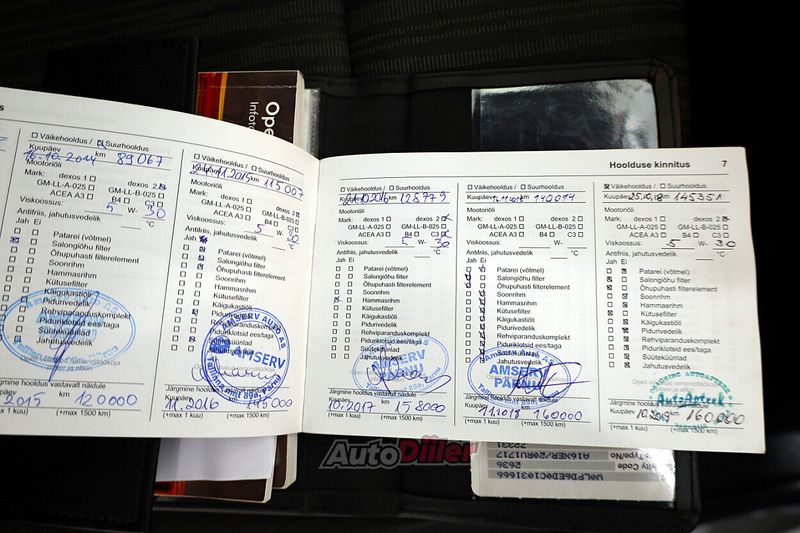 Ope
Infot
□ Väikehooldus / □ Suurhooldus
Kuupäev 16.10.2014 km 89067
Mootoriõli
Mark: dexos 1 □ dexos 2
GM-LL-A-025 □ GM-LL-B-025 □
ACEA A3 □ B4 □ C3 □
Viskoossus: 5 W- 30
Antifriis, jahutusvedelik °C
Jah Ei
Patarei (võtmel)
Salongiõhu filter
Õhupuhasti filterelement
Soonrihm
Hammasrihm
Kütusefilter
Käigukastiõli
Pidurivedelik
Rehviparanduskomplekt
Piduriklotsid ees/taga
Süüteküünlad
Jahutusvedelik
Järgmine hooldus vastavalt näidule
2015 km 120000
(+max 1 kuu) (+max 1500 km)
□ Väikehooldus / □ Suurhooldus
Kuupäev 11.2015 km 115007
Mootoriõli
Mark: dexos 1 □ dexos 2
GM-LL-A-025 □ GM-LL-B-025 □
ACEA A3 □ B4 □ C3 □
Viskoossus: 5 W- 30
Antifriis, jahutusvedelik °C
Jah Ei
Patarei (võtmel)
Salongiõhu filter
Õhupuhasti filterelement
Soonrihm
Hammasrihm
Kütusefilter
Käigukastiõli
Pidurivedelik
Rehviparanduskomplekt
Piduriklotsid ees/taga
Süüteküünlad
Jahutusvedelik
AMSERV AUTO AS
AMSERV
Tallinna mnt 89a, Pärnu
Järgmine hooldus vastavalt näidule
Kuupäev 11.2016 km 145000
(+max 1 kuu) (+max 1500 km)
Hoolduse kinnitus 7
□ Väikehooldus / □ Suurhooldus
Kuupäev 21.10.2016 km 128779
Mootoriõli
Mark: dexos 1 □ dexos 2
GM-LL-A-025 □ GM-LL-B-025 □
ACEA A3 □ B4 □ C3
Viskoossus: 5 W- 30
Antifriis, jahutusvedelik °C
Jah Ei
Patarei (võtmel)
Salongiõhu filter
Õhupuhasti filterelement
Soonrihm
Hammasrihm
Kütusefilter
Käigukastiõli
Pidurivedelik
Rehviparanduskomplekt
Piduriklotsid ees/taga
Süüteküünlad
Jahutusvedelik
AMSERV
PÄRNU
Järgmine hooldus vastavalt näidule
Kuupäev 10.2017 km 158000
(+max 1 kuu) (+max 1500 km)
□ Väikehooldus / □ Suurhooldus
Kuupäev km 140014
Mootoriõli
Mark: dexos 1 □ dexos 2 □
GM-LL-A-025 □ GM-LL-B-025 □
ACEA A3 □ B4 □ C3 □
Viskoossus: W-
Antifriis, jahutusvedelik °C
Jah Ei
Patarei (võtmel)
Salongiõhu filter
Õhupuhasti filterelement
Soonrihm
Hammasrihm
Kütusefilter
Käigukastiõli
Pidurivedelik
Rehviparanduskomplekt
Piduriklotsid ees/taga
Süüteküünlad
Jahutusvedelik
AMSERV AUTO AS
AMSERV
PÄRNU
Järgmine hooldus vastavalt näidule
Kuupäev 11.2018 km 160000
(+max 1 kuu) (+max 1500 km)
☒ Väikehooldus / □ Suurhooldus
Kuupäev 25.10.18 km 145351
Mootoriõli
Mark: dexos 1 □ dexos 2
GM-LL-A-025 □ GM-LL-B-025 □
ACEA A3 □ B4 □ C3 □
Viskoossus: 5 W- 30
Antifriis, jahutusvedelik °C
Jah Ei
Patarei (võtmel)
Salongiõhu filter
Õhupuhasti filterelement
Soonrihm
Hammasrihm
Kütusefilter
Käigukastiõli
Pidurivedelik
Rehviparanduskomplekt
Piduriklotsid ees/taga
Süüteküünlad
Jahutusvedelik
Järgmine hooldus vastavalt näidule
Kuupäev 10.2019 km 160000
(+max 1 kuu) (+max 1500 km)
AutoDiller
2636
W0LPD6ED0C1031666